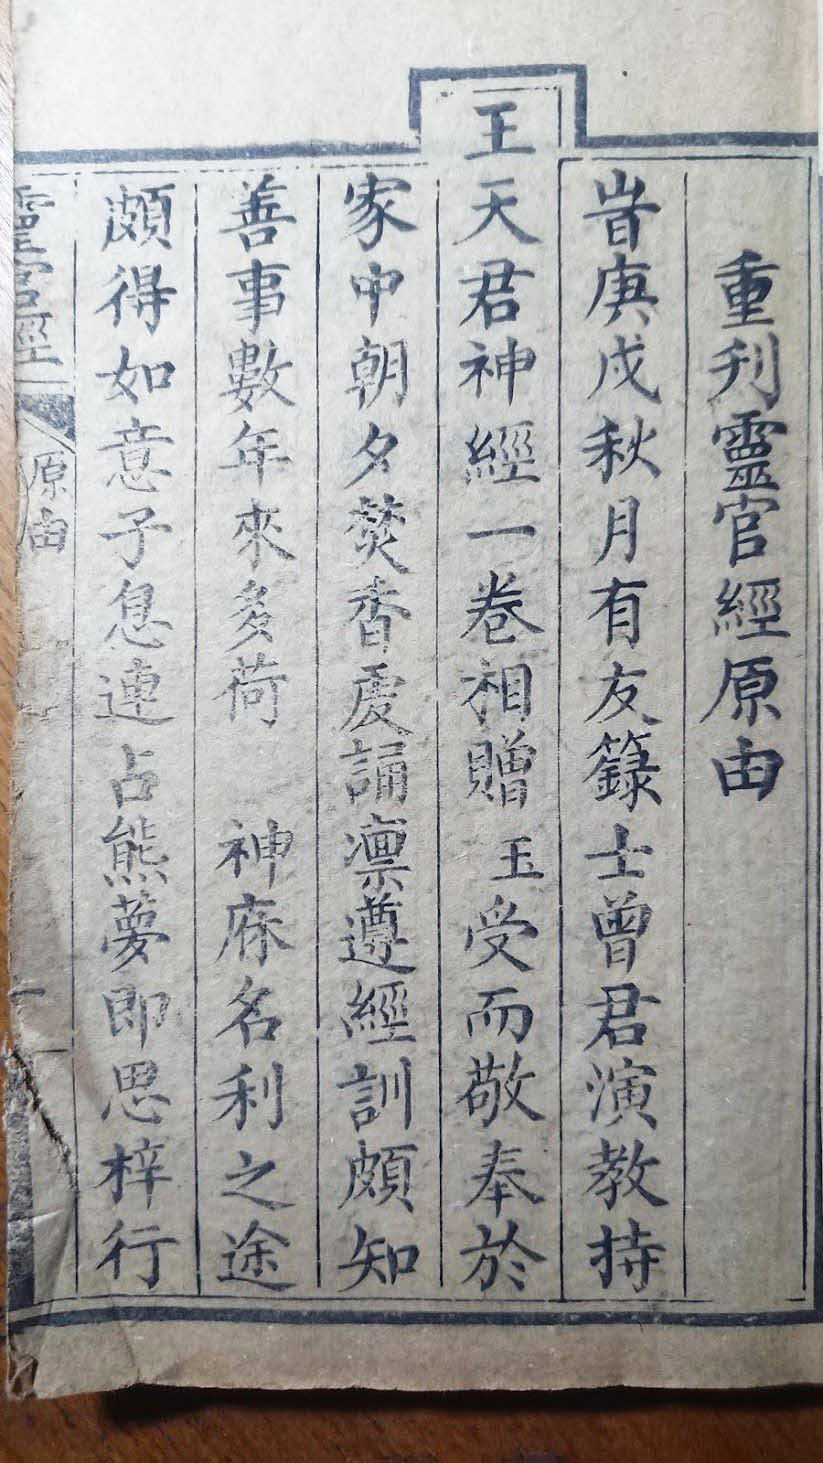 重刋靈官經原由
旹庚戌秋月有友籙士曾君演教持
王天君神經一卷相贈玉受而敬奉於
家中朝夕焚香虔誦凛遵經訓頗知
善事數年來多荷　神庥名利之途
頗得如意子息連占熊夢即思梓行
靈官經　原由　一